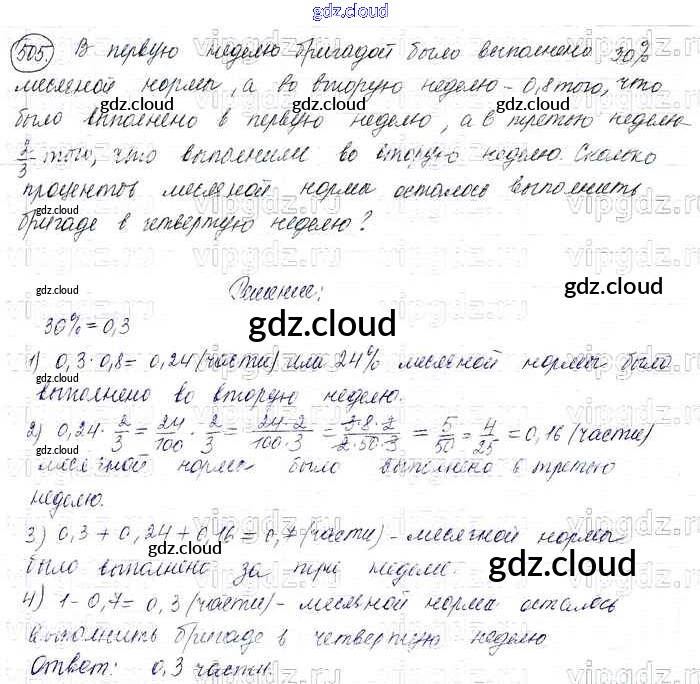 gdz.cloud
505. В первую неделю бригадой было выполнено 30%
месячной нормы, а во вторую неделю - 0,8 того, что
gdz.cloud gdz.cloud gdz.cloud
было выполнено в первую неделю, а в третью неделю
2/3 того, что выполнили во вторую неделю. Сколько
процентов месячной нормы осталось выполнить
gdz.cloud
бригаде в четвертую неделю?
gdz.cloud Решение: gdz.cloud
30% = 0,3 gdz.cloud
1) 0,3 · 0,8 = 0,24 (части) или 24% месячной нормы было
gdz.cloud
выполнено во вторую неделю.
2) 0,24 · 2/3 = 24/100 · 2/3 = 24·2/100·3 = 3·8·2/2·50·3 = 5/50 = 4/25 = 0,16 (части)
gdz.cloud
месячной нормы было выполнено в третью
неделю.
3) 0,3 + 0,24 + 0,16 = 0,7 (части) - месячной нормы
gdz.cloud gdz.cloud
было выполнено за три недели.
4) 1 - 0,7 = 0,3 (части) - месячной нормы осталось
gdz.cloud
выполнить бригаде в четвертую неделю
Ответ: 0,3 части.
gdz.cloud